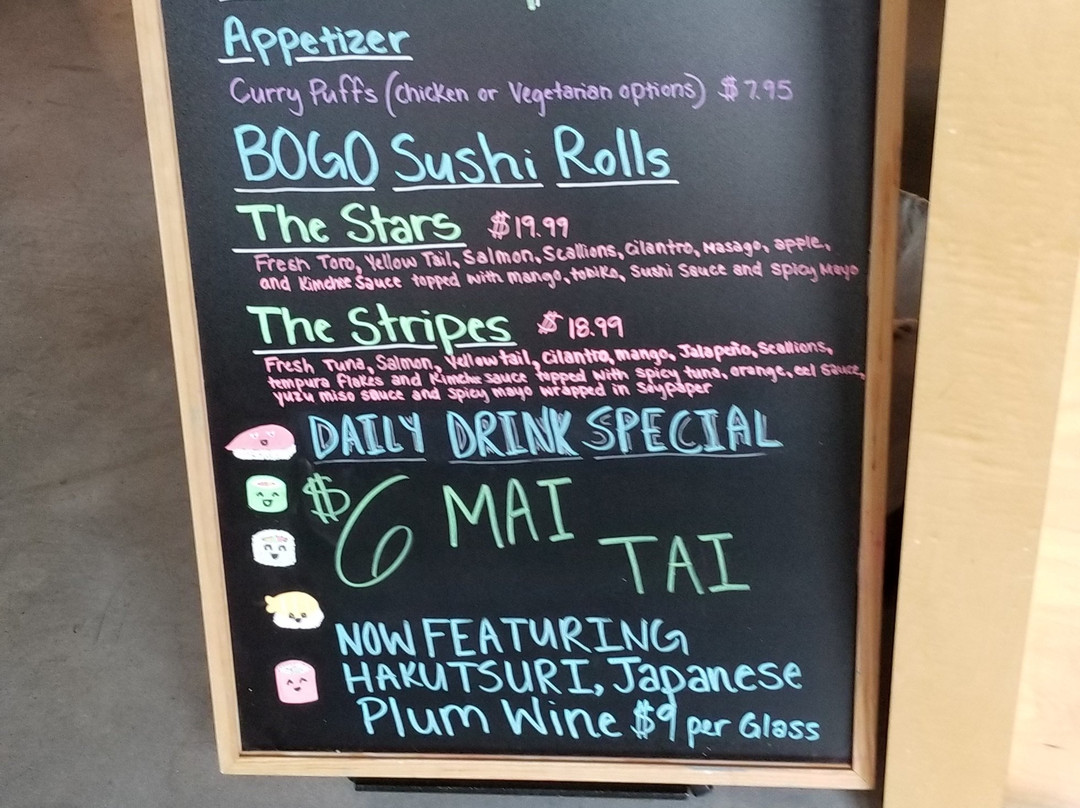 Appetizer
Curry Puffs (chicken or Vegetarian options) $7.95
BOGO Sushi Rolls
The Stars $19.99
Fresh Toro, Yellow Tail, Salmon, Scallions, Cilantro, Masago, apple,
and Kimchee Sauce topped with mango, tobiko, Sushi Sauce and Spicy Mayo
The Stripes $18.99
Fresh Tuna, Salmon, Yellowtail, Cilantro, mango, Jalapeño, Scallions,
tempura flakes and Kimchee sauce topped with spicy tuna, orange, eel sauce,
yuzu miso sauce and spicy mayo wrapped in Soypaper
DAILY DRINK SPECIAL
$6 MAI
TAI
NOW FEATURING
HAKUTSURI, Japanese
Plum Wine $9 per Glass